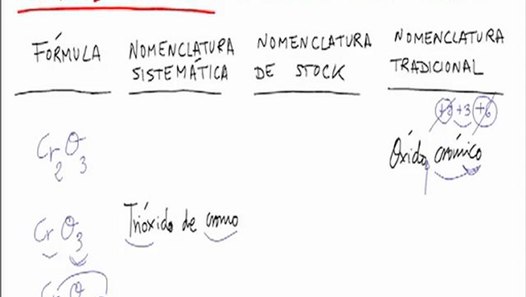 FÓRMULA NOMENCLATURA SISTEMÁTICA NOMENCLATURA DE STOCK NOMENCLATURA TRADICIONAL
+2 +3 +6
Cr2O3 Óxido crómico
CrO3 Trióxido de cromo
Cr O